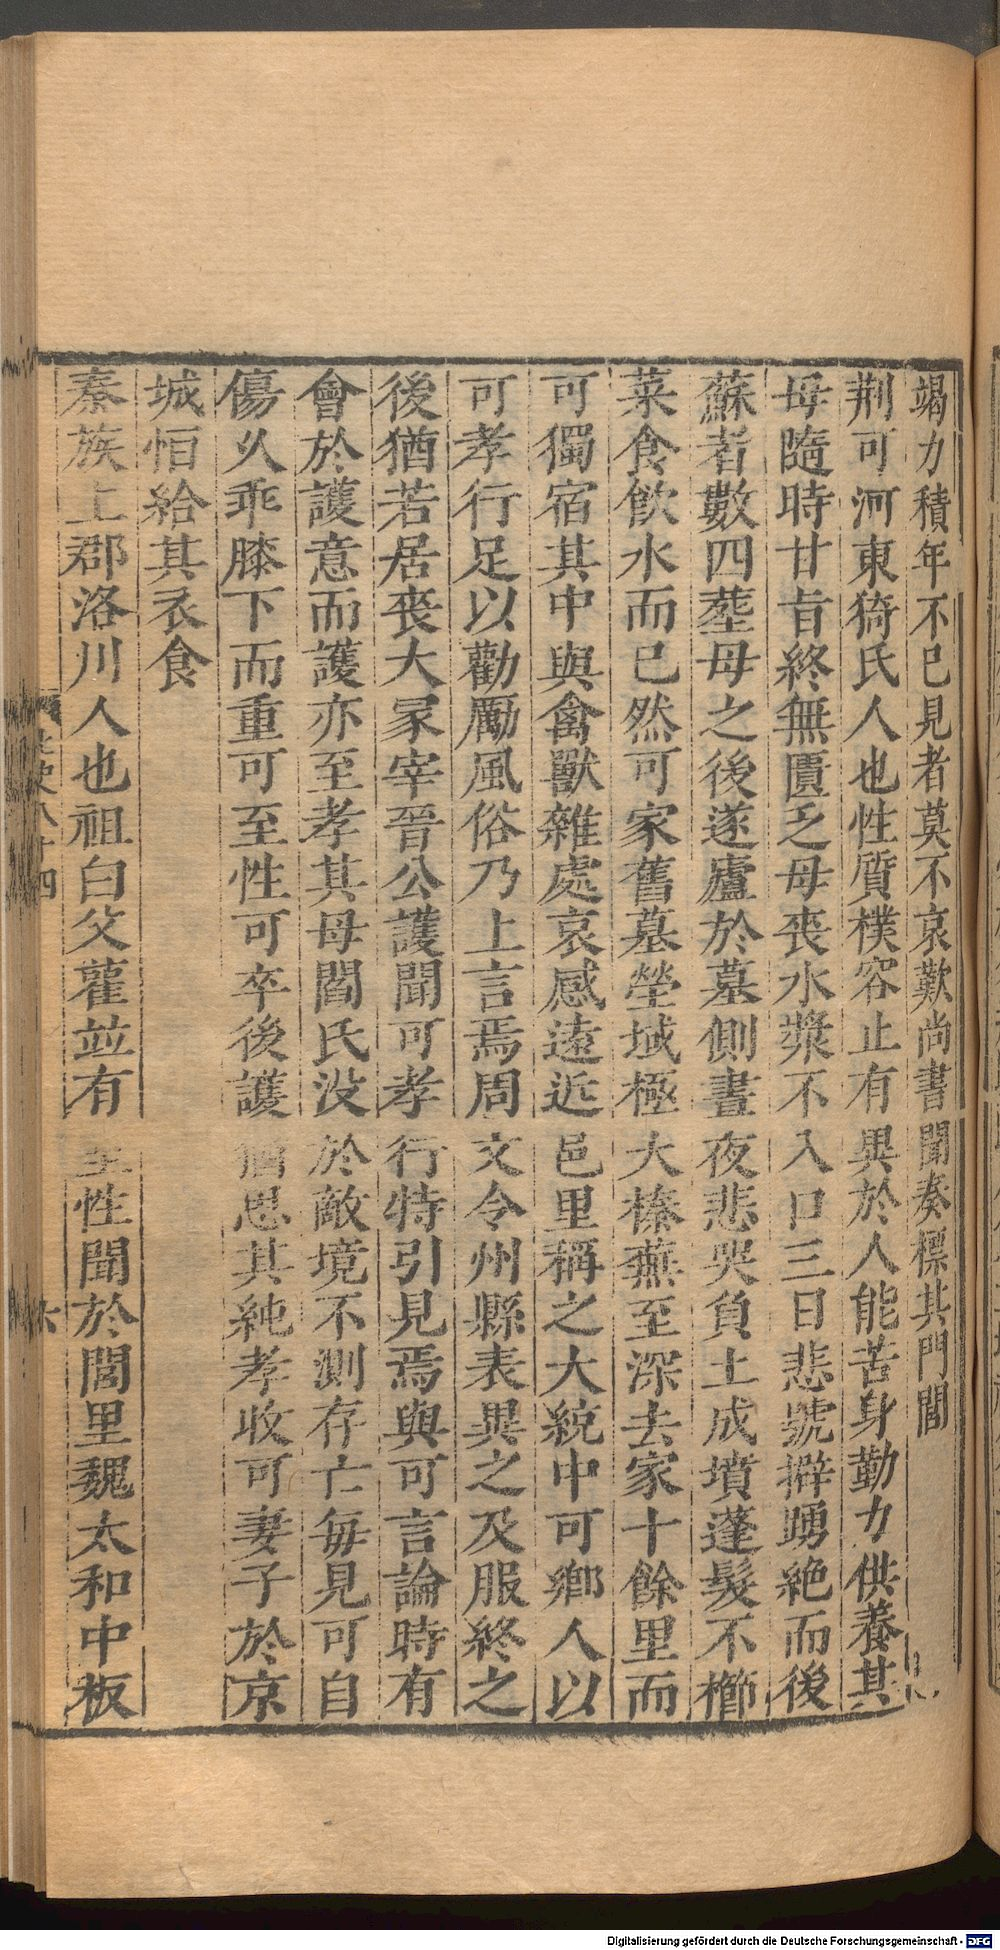 竭力積年不已見者莫不哀歎尚書聞奏標其門閭
荆可河東猗氏人也性質樸容止有異於人能苦身勤力供養其
母隨時甘旨終無匱乏母喪水漿不入口三日悲號擗踴絶而後
蘇者數四葬母之後遂廬於墓側晝夜悲哭負土成墳蓬髮不櫛
菜食飲水而已然可家舊墓塋域極大榛蕪至深去家十餘里而
可獨宿其中與禽獸雜處哀感遠近邑里稱之大統中可鄉人以
可孝行足以勸勵風俗乃上言焉周文令州縣表異之及服終之
後猶若居喪大冢宰晉公護聞可孝行特引見焉與可言論時有
會於護意而護亦至孝其母閻氏没於敵境不測存亡每見可自
傷乆乖膝下而重可至性可卒後護猶思其純孝收可妻子於京
城恒給其衣食
秦族上郡洛川人也祖白父雚並有至性聞於閭里魏太和中板
北史八十四
六
Digitalisierung gefördert durch die Deutsche Forschungsgemeinschaft - DFG